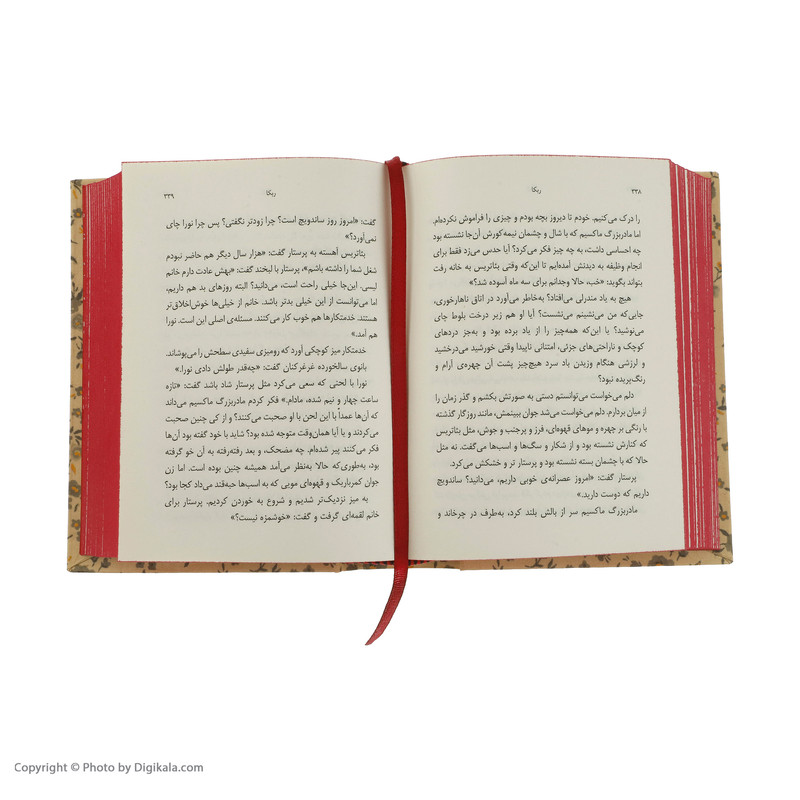 ۳۳۸
ربکا
را درک می‌کنیم. خودم تا دیروز بچه بودم و چیزی را فراموش نکرده‌ام.
اما مادربزرگ ماکسیم که با شال و چشمان نیمه‌کورش آن‌جا نشسته بود
چه احساسی داشت، به چه چیز فکر می‌کرد؟ آیا حدس می‌زد فقط برای
انجام وظیفه به دیدنش آمده‌ایم تا این‌که وقتی بئاتریس به خانه رفت
بتواند بگوید: «خب، حالا وجدانم برای سه ماه آسوده شد؟»
هیچ به یاد مندرلی می‌افتاد؟ به‌خاطر می‌آورد در اتاق ناهارخوری،
جایی‌که من می‌نشینم می‌نشست؟ آیا او هم زیر درخت بلوط چای
می‌نوشید؟ یا این‌که همه‌چیز را از یاد برده بود و به‌جز دردهای
کوچک و ناراحتی‌های جزئی، امتنانی ناپیدا وقتی خورشید می‌درخشید
و لرزشی هنگام وزیدن باد سرد هیچ‌چیز پشت آن چهره‌ی آرام و
رنگ‌پریده نبود؟
دلم می‌خواست می‌توانستم دستی به صورتش بکشم و گذر زمان را
از میان بردارم. دلم می‌خواست می‌شد جوان ببینمش، مانند روزگار گذشته
با رنگی بر چهره و موهای قهوه‌ای، فرز و پرجنب و جوش، مثل بئاتریس
که کنارش نشسته بود و از شکار و سگ‌ها و اسب‌ها می‌گفت. نه مثل
حالا که با چشمان بسته نشسته بود و پرستار تر و خشکش می‌کرد.
پرستار گفت: «امروز عصرانه‌ی خوبی داریم، می‌دانید؟ ساندویچ
داریم که دوست دارید.»
مادربزرگ ماکسیم سر از بالش بلند کرد، به‌طرف در چرخاند و
ربکا
۳۳۹
گفت: «امروز روز ساندویچ است؟ چرا زودتر نگفتی؟ پس چرا نورا چای
نمی‌آورد؟»
بئاتریس آهسته به پرستار گفت: «هزار سال دیگر هم حاضر نبودم
شغل شما را داشته باشم»، پرستار با لبخند گفت: «بهش عادت دارم خانم
لیسی. این‌جا خیلی راحت است، می‌دانید؟ البته روزهای بد هم داریم،
اما می‌توانست از این خیلی بدتر باشد. خانم از خیلی‌ها خوش‌اخلاق‌تر
هستند. خدمتکارها هم خوب کار می‌کنند. مسئله‌ی اصلی این است. نورا
هم آمد.»
خدمتکار میز کوچکی آورد که رومیزی سفیدی سطحش را می‌پوشاند.
بانوی سالخورده غرغرکنان گفت: «چه‌قدر طولش دادی نورا.»
نورا با لحنی که سعی می‌کرد مثل پرستار شاد باشد گفت: «تازه
ساعت چهار و نیم شده، مادام.» فکر کردم مادربزرگ ماکسیم می‌داند
که آن‌ها عمداً با این لحن با او صحبت می‌کنند؟ و از کی چنین صحبت
می‌کردند و با آیا همان‌وقت متوجه شده بود؟ شاید با خود گفته بود آن‌ها
فکر می‌کنند پیر شده‌ام. چه مضحک، و بعد رفته‌رفته به آن خو گرفته
بود، به‌طوری‌که حالا به‌نظر می‌آمد همیشه چنین بوده است. اما زن
جوان کمرباریک و قهوه‌ای مویی که به اسب‌ها حبه‌قند می‌داد کجا بود؟
به میز نزدیک‌تر شدیم و شروع به خوردن کردیم. پرستار برای
خانم لقمه‌ای گرفت و گفت: «خوشمزه نیست؟»
Copyright © Photo by Digikala.com